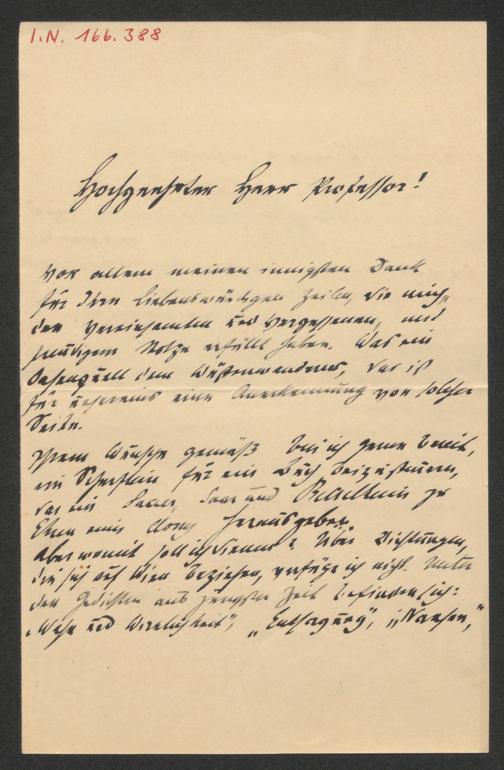 I.N. 166.388
Hochgeehrter Herr Professor!
Vor allem meinen innigsten Dank
für Ihre liebenswürdigen Zeilen, die mich,
den Vereinsamten und Vergessenen, mit
freudigem Stolze erfüllt haben. Was ein
Oasenquell dem Wüstenwanderer, das ist
für unsereins eine Anerkennung von solcher
Seite.
Ihrem Wunsche gemäß bin ich gerne bereit,
ein Scherflein für ein Buch beizusteuern,
das ein Saar und zu
Ehren eines herausgeben.
Aber womit soll ich dienen? Über Dichtungen,
die sich auf Wien beziehen, verfüge ich nicht. Unter
den Gedichten aus jüngster Zeit befinden sich:
„Wahn und Wirklichkeit", „Entsagung", „Nansen,"